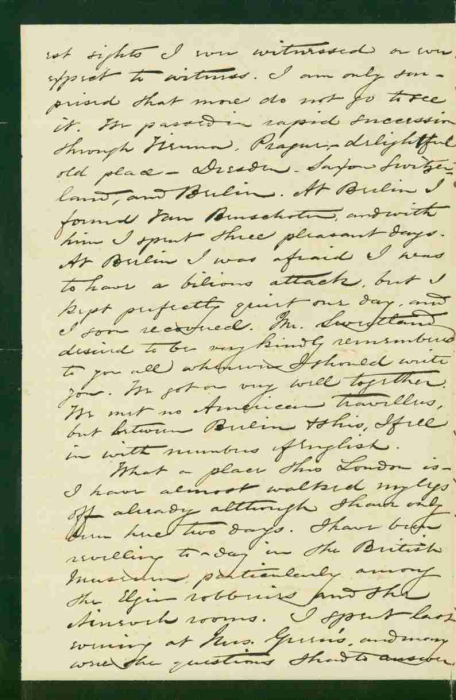 est sights I ever witnessed or ever
expect to witness. I am only sur-
prised that more do not go to see
it. We passed in rapid succession
through Vienna, Prague, - delightful
old place - Dresden - Saxon Switzer-
land, and Berlin. At Berlin I
found Van Benschoten, and with
him I spent three pleasant days.
At Berlin I was afraid I was
to have a bilious attack, but I
kept perfectly quiet one day, and
I soon recovered. Mr.
desired to be very kindly remembered
to you all whenever I should write
you. We got on very well together.
We met no American travellers,
but between Berlin & this, I fell
in with numbers of English.
What a place this London is -
I have almost walked my legs
off already although I have only
been here two days. I have been
revelling to-day in the British
Museum particularly among
the Elgin robberies and the
Nineveh rooms. I spent last
evening at Mrs. Green's, and many
were the questions I had to answer